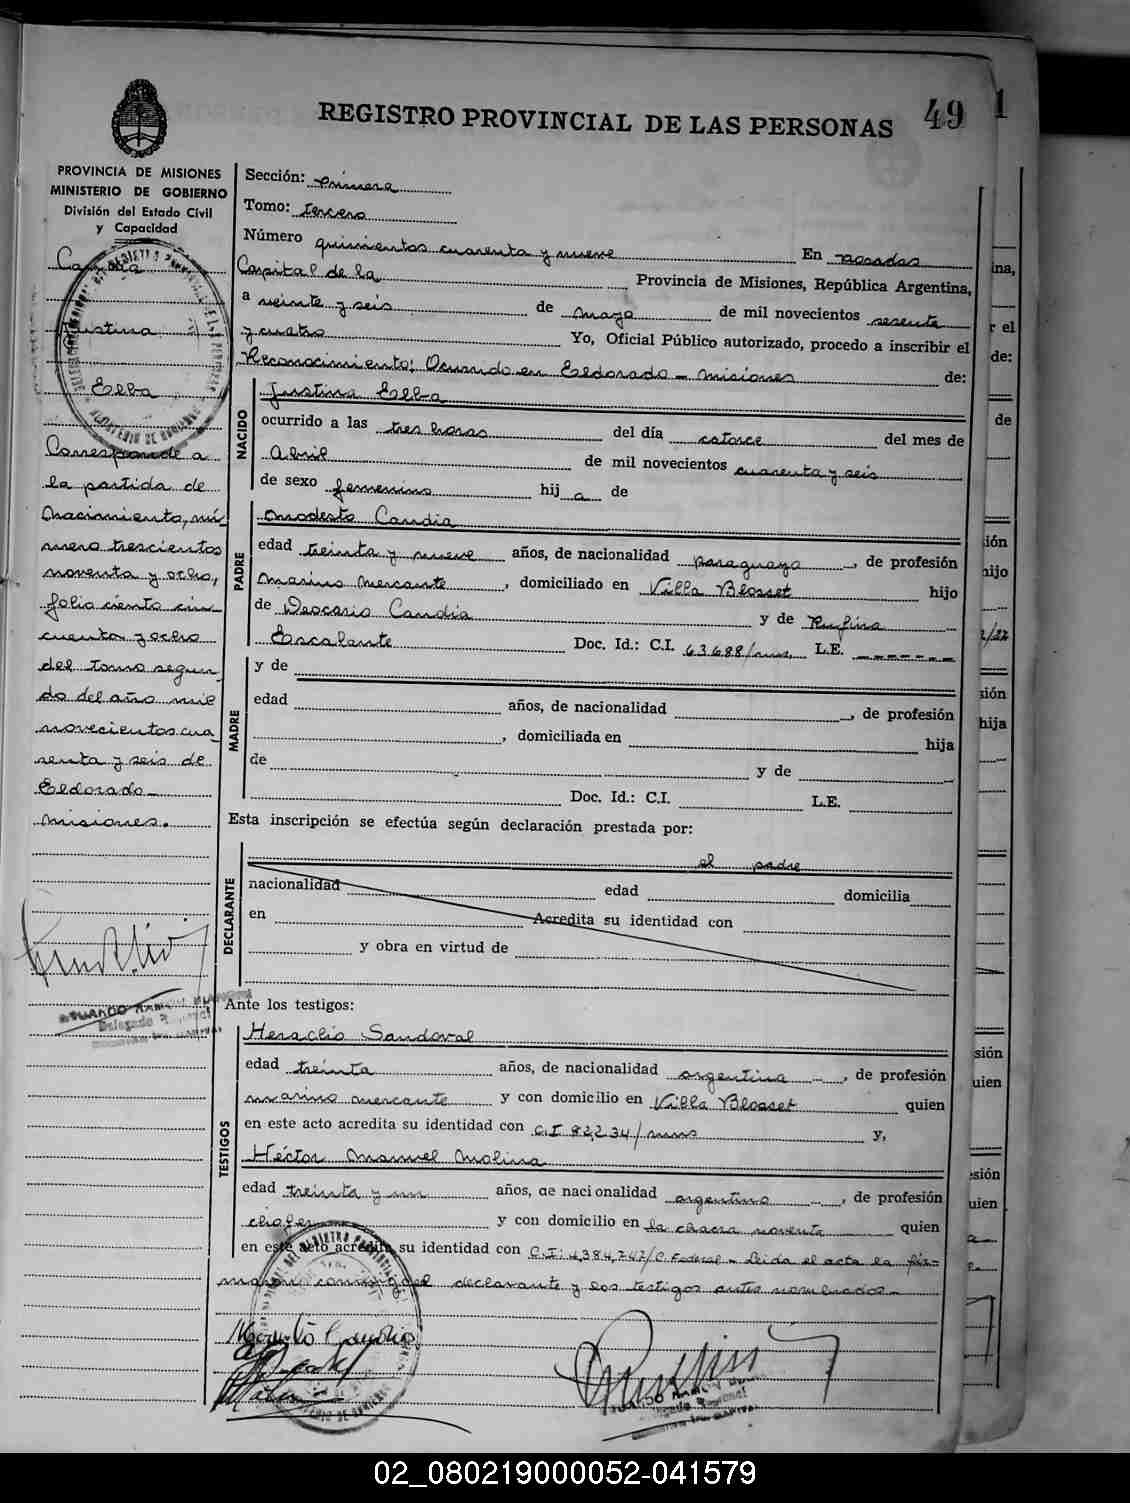 REGISTRO PROVINCIAL DE LAS PERSONAS
49
1
PROVINCIA DE MISIONES
MINISTERIO DE GOBIERNO
División del Estado Civil
y Capacidad
Candia
Justina
Elba
Corresponde a
la partida de
Nacimiento, nú-
mero trescientos
noventa y ocho,
folio ciento cin-
cuenta y ocho
del tomo segun-
do del año mil
novecientos cua-
renta y seis de
Eldorado -
Misiones.
Delegado Regional
Sección: Primera
Tomo: Tercero
Número quinientos cuarenta y nueve En Posadas
Capital de la Provincia de Misiones, República Argentina,
a veinte y seis de Mayo de mil novecientos sesenta
y cuatro Yo, Oficial Público autorizado, procedo a inscribir el
Reconocimiento: Ocurrido en Eldorado - Misiones de:
NACIDO
Justina Elba
ocurrido a las tres horas del día catorce del mes de
Abril de mil novecientos cuarenta y seis
de sexo femenino hij a de
PADRE
Modesto Candia
edad treinta y nueve años, de nacionalidad paraguaya, de profesión
Marino Mercante, domiciliado en Villa Blosset hijo
de Deocario Candia y de Rufina
Escalante Doc. Id.: C.I. 63.688/mns. L.E. -------
MADRE
y de
edad años, de nacionalidad , de profesión
, domiciliada en hija
de y de
Doc. Id.: C.I. L.E.
Esta inscripción se efectúa según declaración prestada por:
DECLARANTE
el padre
nacionalidad edad domicilia
en Acredita su identidad con
y obra en virtud de
Ante los testigos:
TESTIGOS
Heraclio Sandoval
edad treinta años, de nacionalidad argentina, de profesión
marino mercante y con domicilio en Villa Blosset quien
en este acto acredita su identidad con C.I. 82.234/mns y,
Héctor Manuel Molina
edad treinta y un años, de nacionalidad argentino, de profesión
chofer y con domicilio en la chacra noventa quien
en este acto acredita su identidad con C.I: 4.384.747/C. Federal - Leida el acta la fir-
maron conmigo el declarante y los testigos antes nombrados -
Modesto Candia
Delegado Regional
02_080219000052-041579